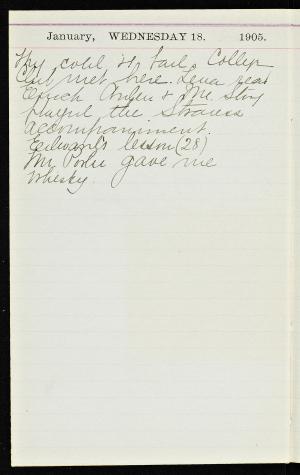 January, WEDNESDAY 18. 1905.
My cold is bad. College
Club met here. Lena read
Enoch Arden & Mr.
played the Strauss
accompaniment.
Edward's lesson (28)
Mr. Porter gave me
whisky.